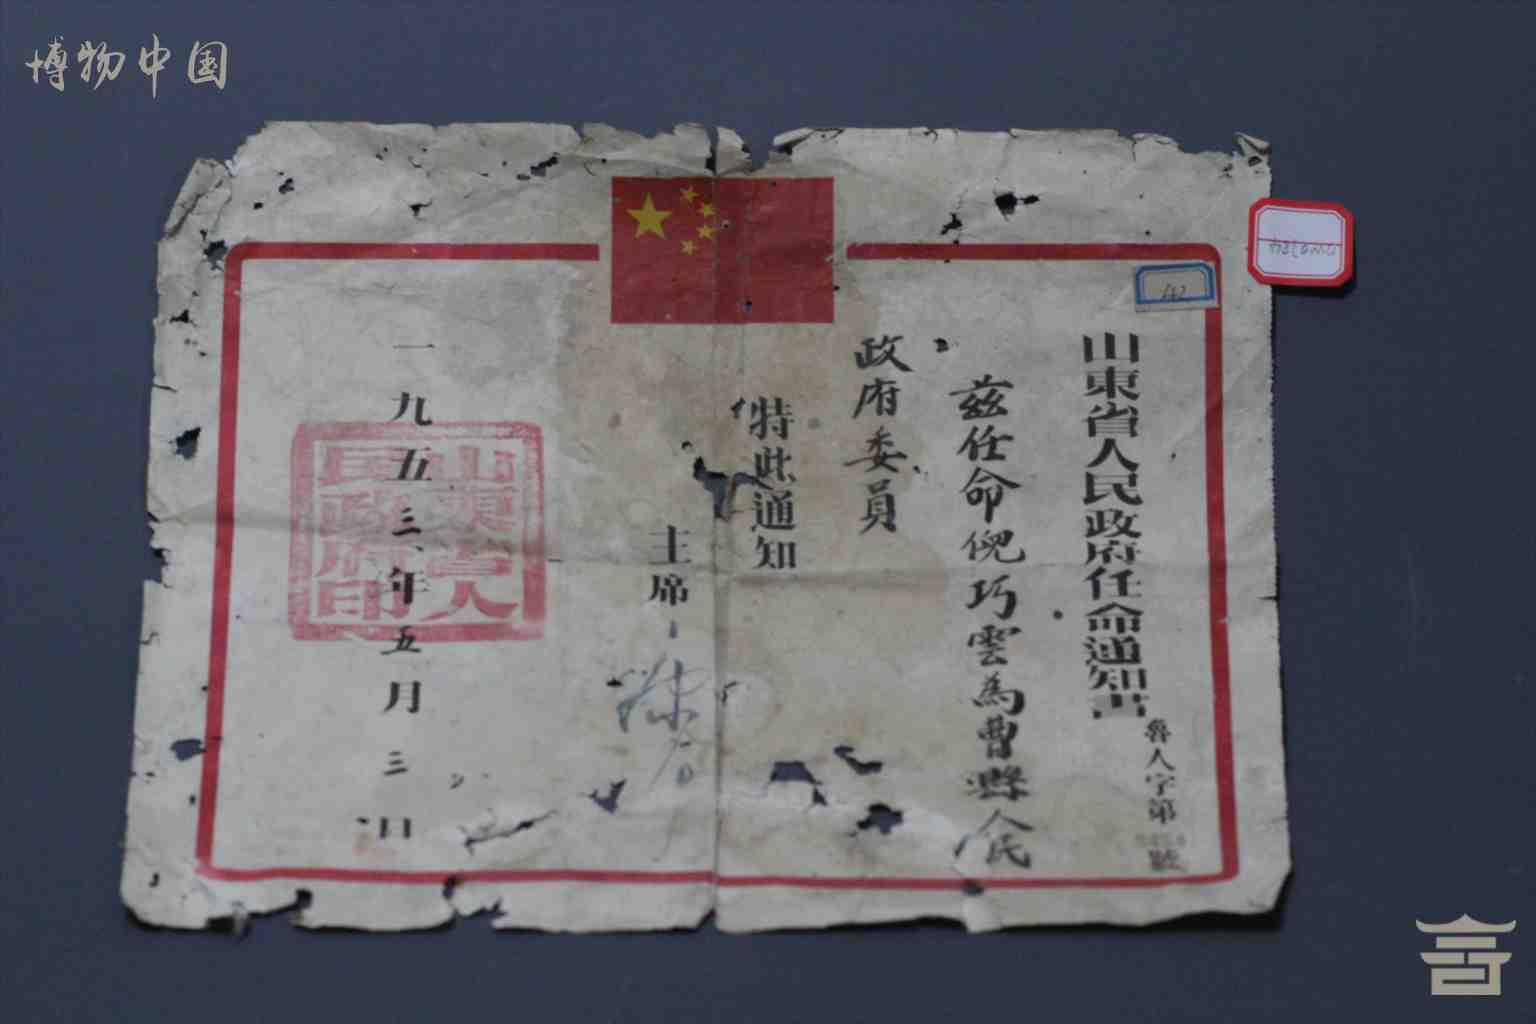 博物中国
142
山東省人民政府任命通知書
魯人字第
號
茲任命倪巧雲為曹縣人民
政府委員
特此通知
主席
一九五三年五月三日
山東省人
民政府印